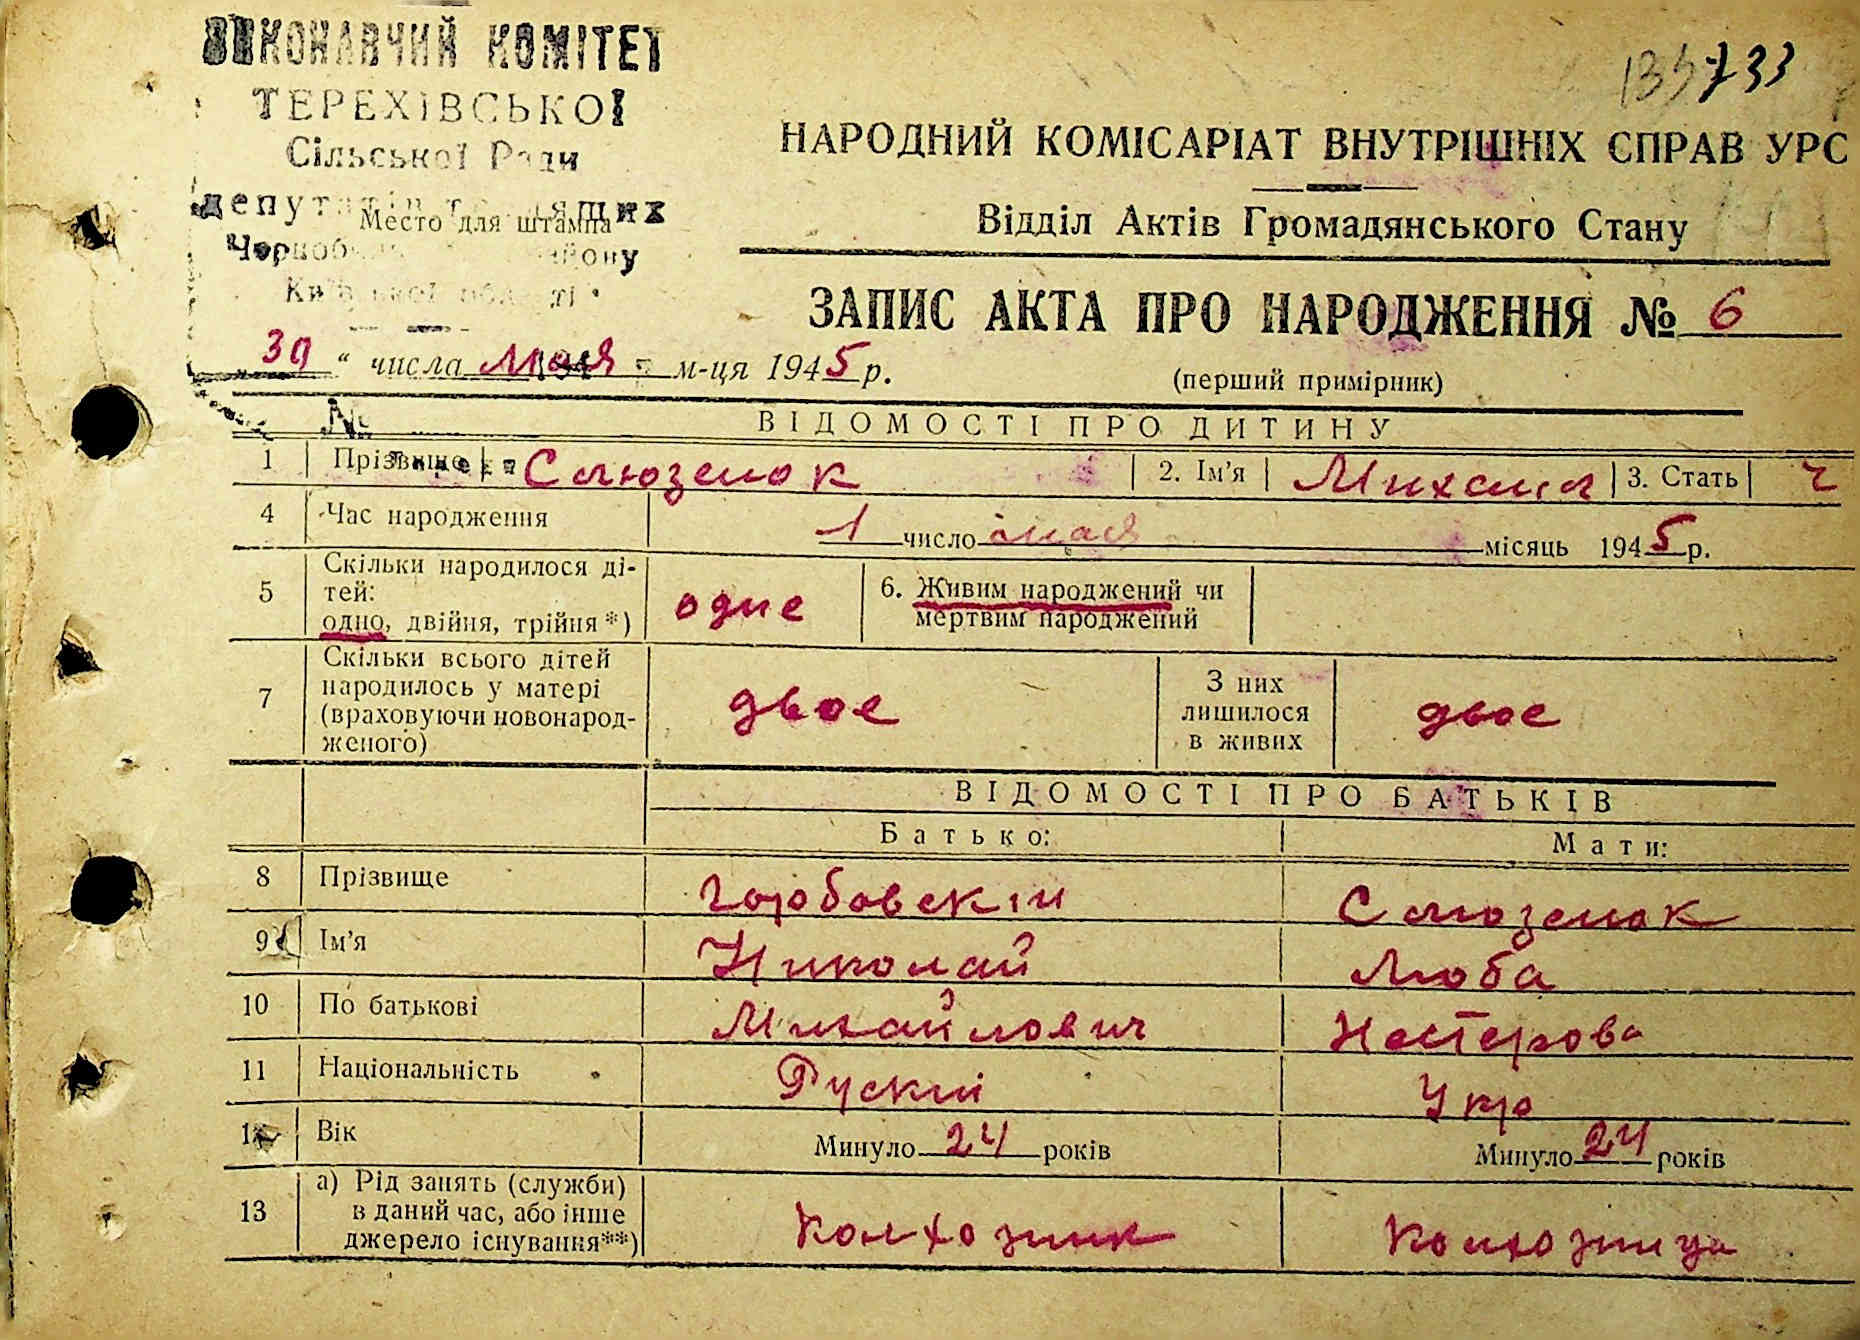 ВИКОНАВЧИЙ КОМІТЕТ
ТЕРЕХІВСЬКОЇ
Сільської Ради
депутатів трудящих
Место для штампа
Київської області
733
НАРОДНИЙ КОМІСАРІАТ ВНУТРІШНІХ СПРАВ УРСР
Відділ Актів Громадянського Стану
ЗАПИС АКТА ПРО НАРОДЖЕННЯ № 6
30 " числа мая м-ця 1945 р.
(перший примірник)
№
ВІДОМОСТІ ПРО ДИТИНУ
1 Прізвище Слюзенок 2. Ім'я Михаил 3. Стать ч
4 Час народження 1 число мая місяць 1945 р.
5 Скільки народилося дітей: одно, двійня, трійня*) одне 6. Живим народжений чи мертвим народжений
7 Скільки всього дітей народилось у матері (враховуючи новонародженого) двое З них лишилося в живих двое
ВІДОМОСТІ ПРО БАТЬКІВ
Батько: Мати:
8 Прізвище Горбовский Слюзенок
9 Ім'я Николай Люба
10 По батькові Михайлович Нестерова
11 Національність Руский Укр
12 Вік Минуло 24 років Минуло 24 років
13 а) Рід занять (служби) в даний час, або інше джерело існування**) Колхозник Колхозница